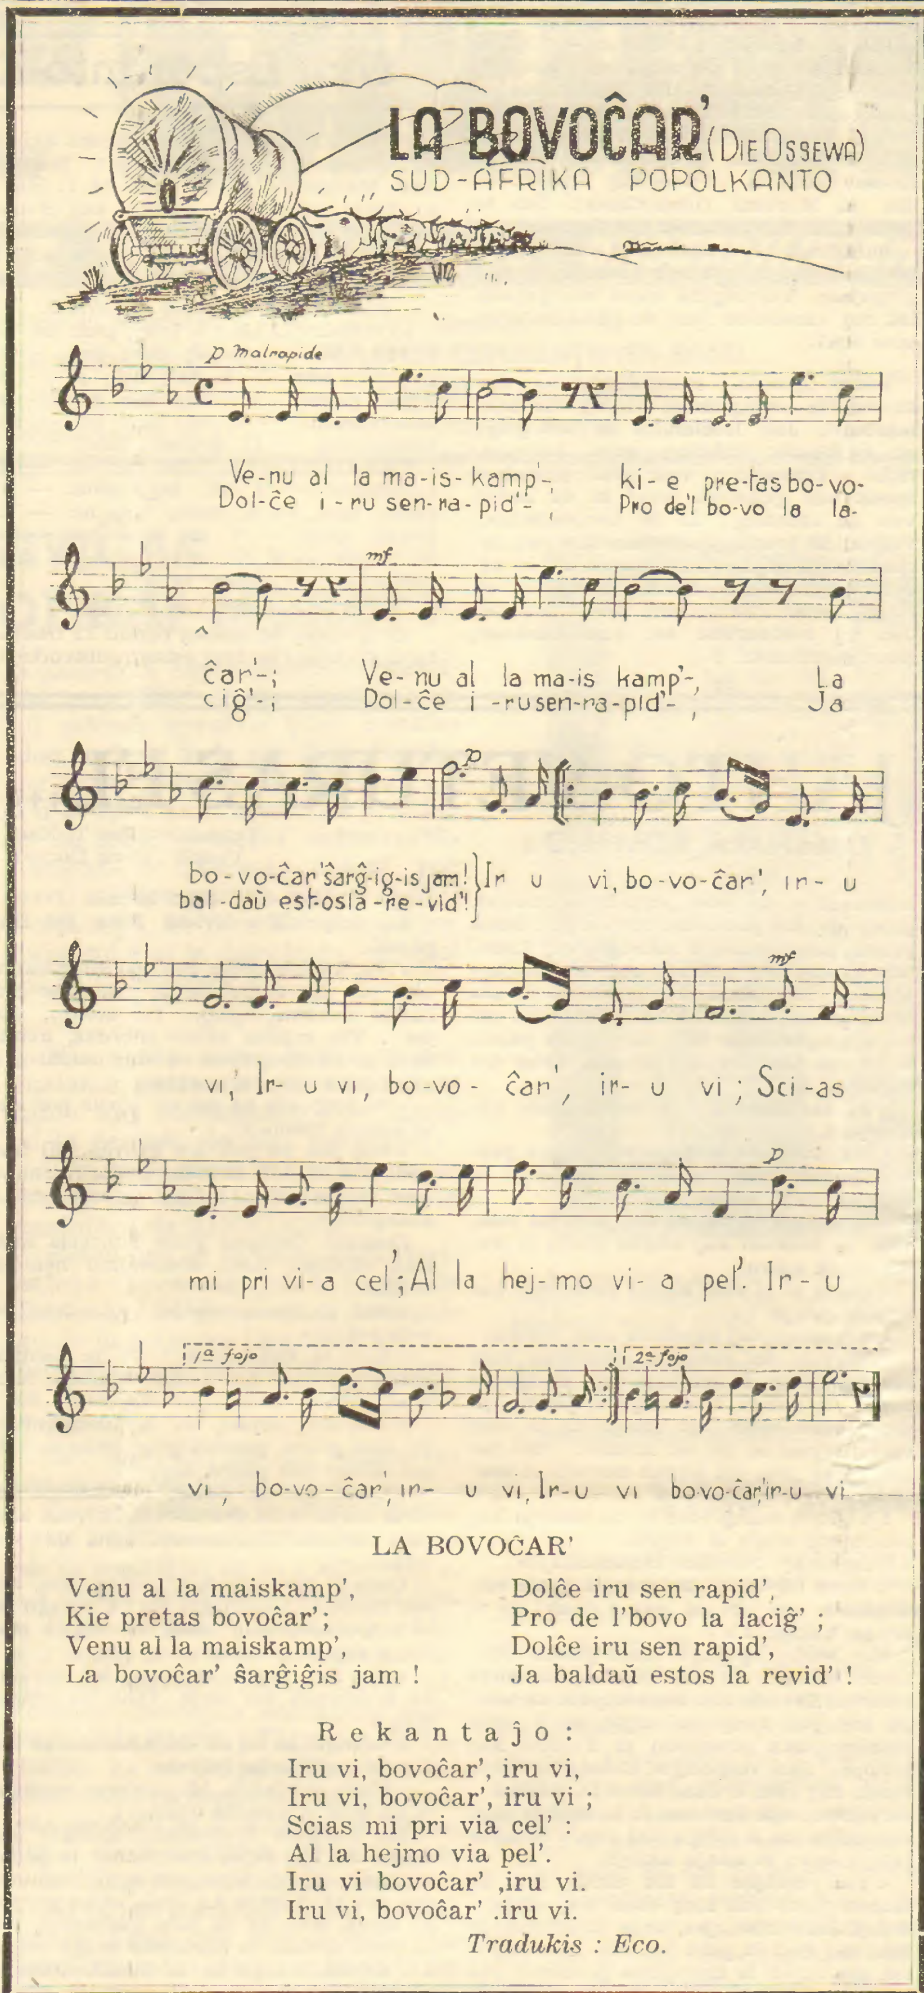 LA BOVOĈAR' (DIE OSSEWA)
SUD-AFRIKA POPOLKANTO
p malrapide
Ve-nu al la ma-is-kamp'-, ki-e pre-tas bo-vo-
Dol-ĉe i-ru sen-ra-pid'-, Pro de'l bo-vo la la-
mf
ĉar'-; Ve-nu al la ma-is kamp'-, La
ciĝ'-; Dol-ĉe i-ru sen-ra-pid'-, Ja
p
bo-vo-ĉar' ŝarĝ-ig-is jam! Ir u vi, bo-vo-ĉar', ir-u
bal-daŭ est-os la-re-vid'!
mf
vi,' Ir-u vi, bo-vo-ĉar', ir-u vi; Sci-as
p
mi pri vi-a cel'; Al la hej-mo vi-a pel'. Ir-u
1a fojo 2a fojo
vi, bo-vo-ĉar', ir-u vi, Ir-u vi bo-vo-ĉar,' ir-u vi
LA BOVOĈAR'
Venu al la maiskamp',
Kie pretas bovoĉar';
Venu al la maiskamp',
La bovoĉar' ŝarĝiĝis jam !
Dolĉe iru sen rapid',
Pro de l'bovo la laciĝ' ;
Dolĉe iru sen rapid',
Ja baldaŭ estos la revid' !
Rekantaĵo :
Iru vi, bovoĉar', iru vi,
Iru vi, bovoĉar', iru vi ;
Scias mi pri via cel' :
Al la hejmo via pel'.
Iru vi bovoĉar' ,iru vi.
Iru vi, bovoĉar' .iru vi.
Tradukis : Eco.